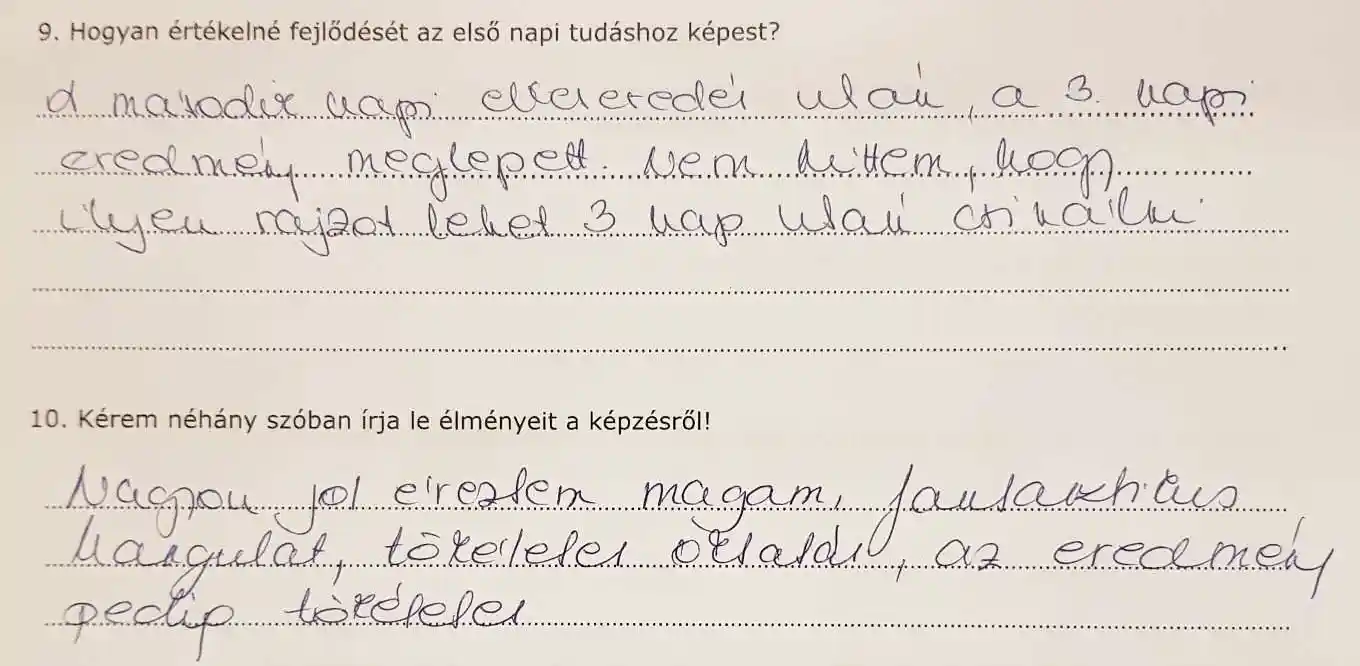 9. Hogyan értékelné fejlődését az első napi tudáshoz képest?
A második napi elkeseredés után, a 3. napi
eredmény meglepett. Nem hittem, hogy
ilyen rajzot lehet 3 nap után csinálni.
10. Kérem néhány szóban írja le élményeit a képzésről!
Nagyon jól éreztem magam, fantasztikus
hangulat, tökéletes oktatás, az eredmény
pedig tökéletes